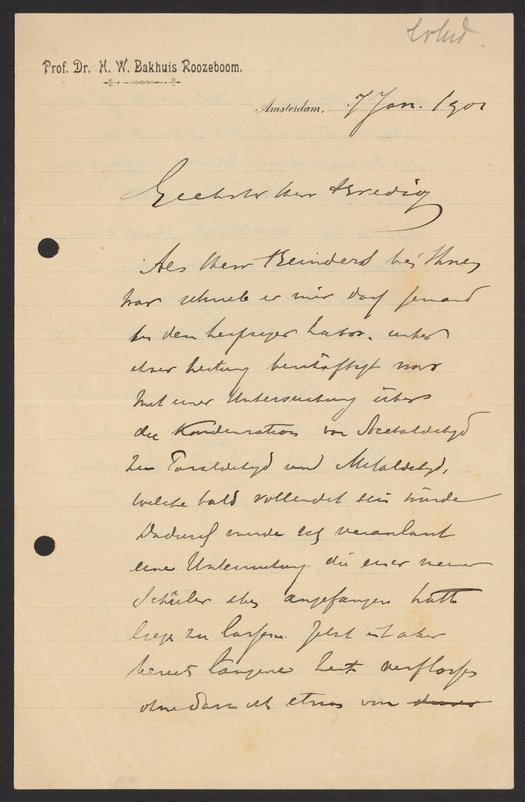 erled.
Prof. Dr. H. W. Bakhuis Roozeboom.
Amsterdam, 7 Jan. 1901
Geehrter Herr Bredig
Als Herr Reinders bei Ihnen
war schrieb er mir dass jemand
in dem Leipziger Labor. unter
Ihrer Leitung beschäftigt war
mit einer Untersuchung über
die Kondensation von Acetaldehyd
zu Paraldehyd und Metaldehyd,
welche bald vollendet sein würde
Dadurch wurde ich veranlasst
eine Untersuchung die einer meiner
Schüler eben angefangen hatte
liegen zu lassen. Jetzt ist aber
bereits längere Zeit verflossen
ohne dass ich etwas von dieser